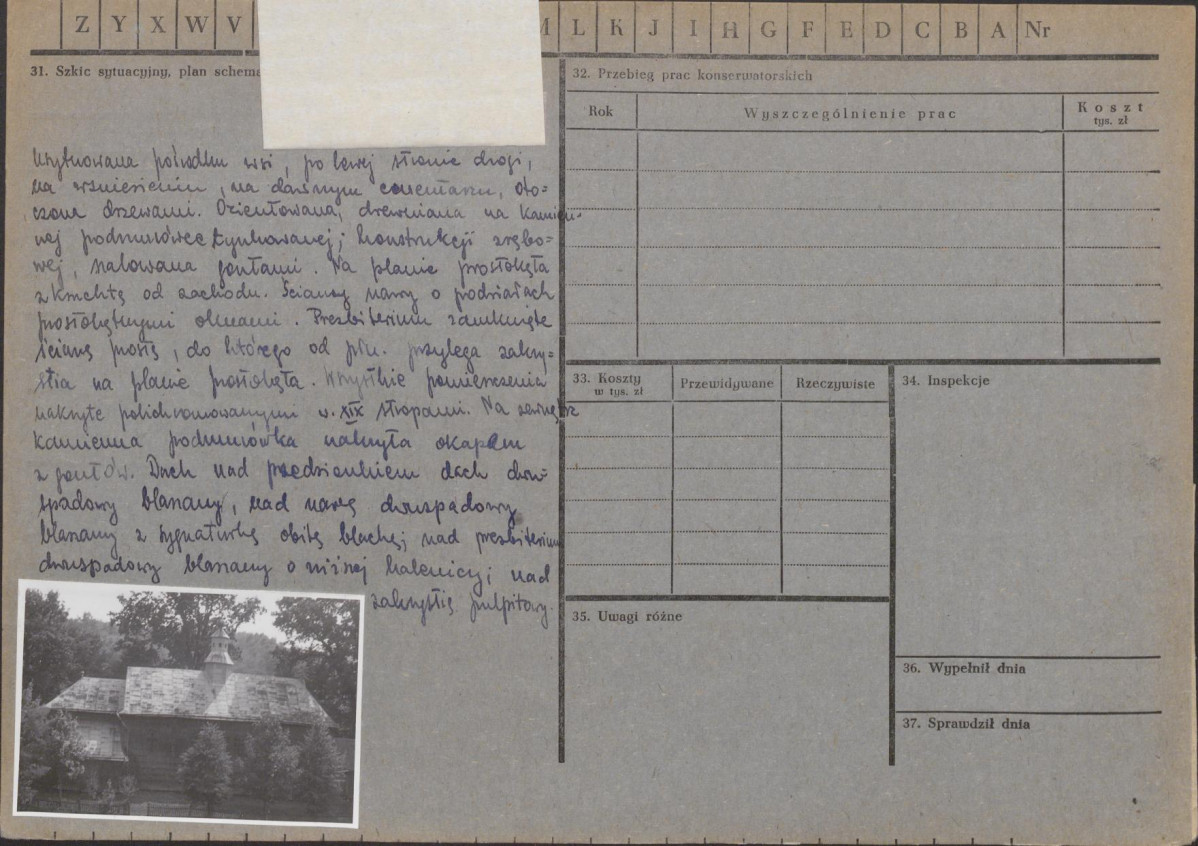 Z Y X W V M L K J I H G F E D C B A Nr
31. Szkic sytuacyjny, plan schema
Usytuowana pośrodku wsi, po lewej stronie drogi,
na wzniesieniu, na dawnym cmentarzu, oto=
czona drzewami. Orientowana, drewniana na kamien-
nej podmurówce tynkowanej; konstrukcji zrębo=
wej, szalowana gontami. Na planie prostokąta
z kruchtą od zachodu. Ściany nawy o podziałach
prostokątnymi oknami. Prezbiterium zamknięte
ścianą prostą, do którego od płn. przylega zakry=
stia na planie prostokąta. Wszystkie pomieszczenia
nakryte polichromowanymi w. XIX stropami. Na zewnątrz
kamienna podmurówka nakryta okapem
z gontów. Dach nad przedsionkiem dach dwu-
spadowy blaszany, nad nawą dwuspadowy
blaszany z sygnaturką obitą blachą; nad prezbiterium
dwuspadowy blaszany o niższej kalenicy; nad
zakrystią pulpitowy.
32. Przebieg prac konserwatorskich
Rok Wyszczególnienie prac Koszt
tys. zł
33. Koszty
w tys. zł
Przewidywane Rzeczywiste
34. Inspekcje
35. Uwagi różne
36. Wypełnił dnia
37. Sprawdził dnia